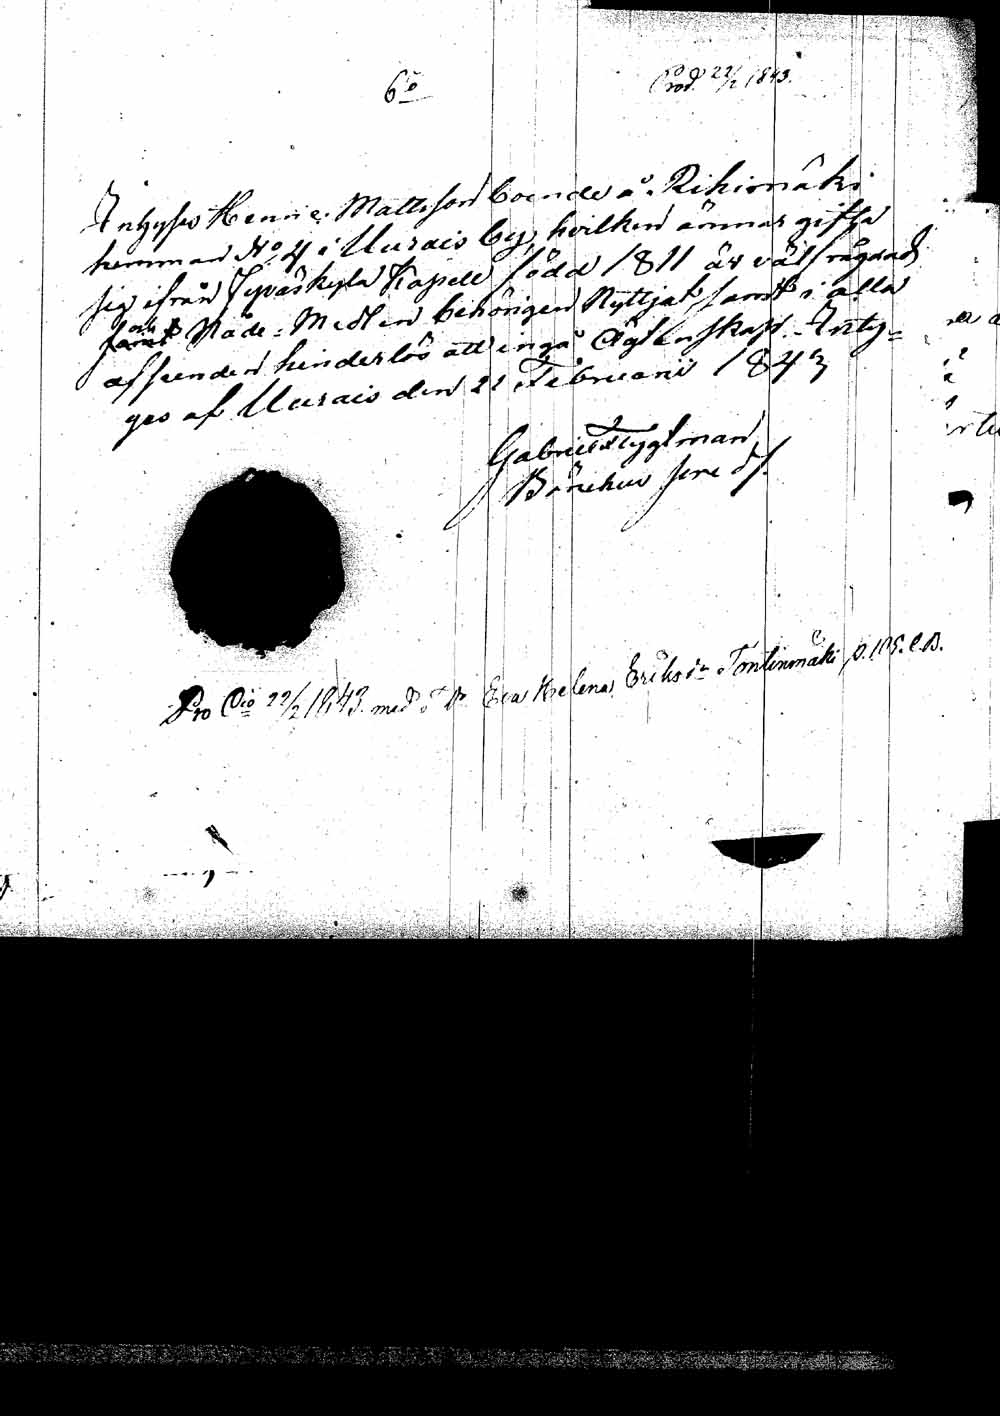 6o
Prod. 22/2 1843.
Inhyses Hennic Mattsson boende å Rihimäki
hemman No 4 i Uurais by, hvilken ämnar gifta
sig ifrån Jyväskyla Kapell född 1811 är väl frägdad
och Nåde-Medlen behörigen Nyttjat samt i alla
afseenden hinderlös att ingå Ägtenskapp. Inty=
gas af Uurais den 21 Februarii 1843
Gabriel Flygtman
Bönehus
Pro Dio 22/2 1843. med Eva Helena Eriks dr Tontinmäki p. 105. C.B.